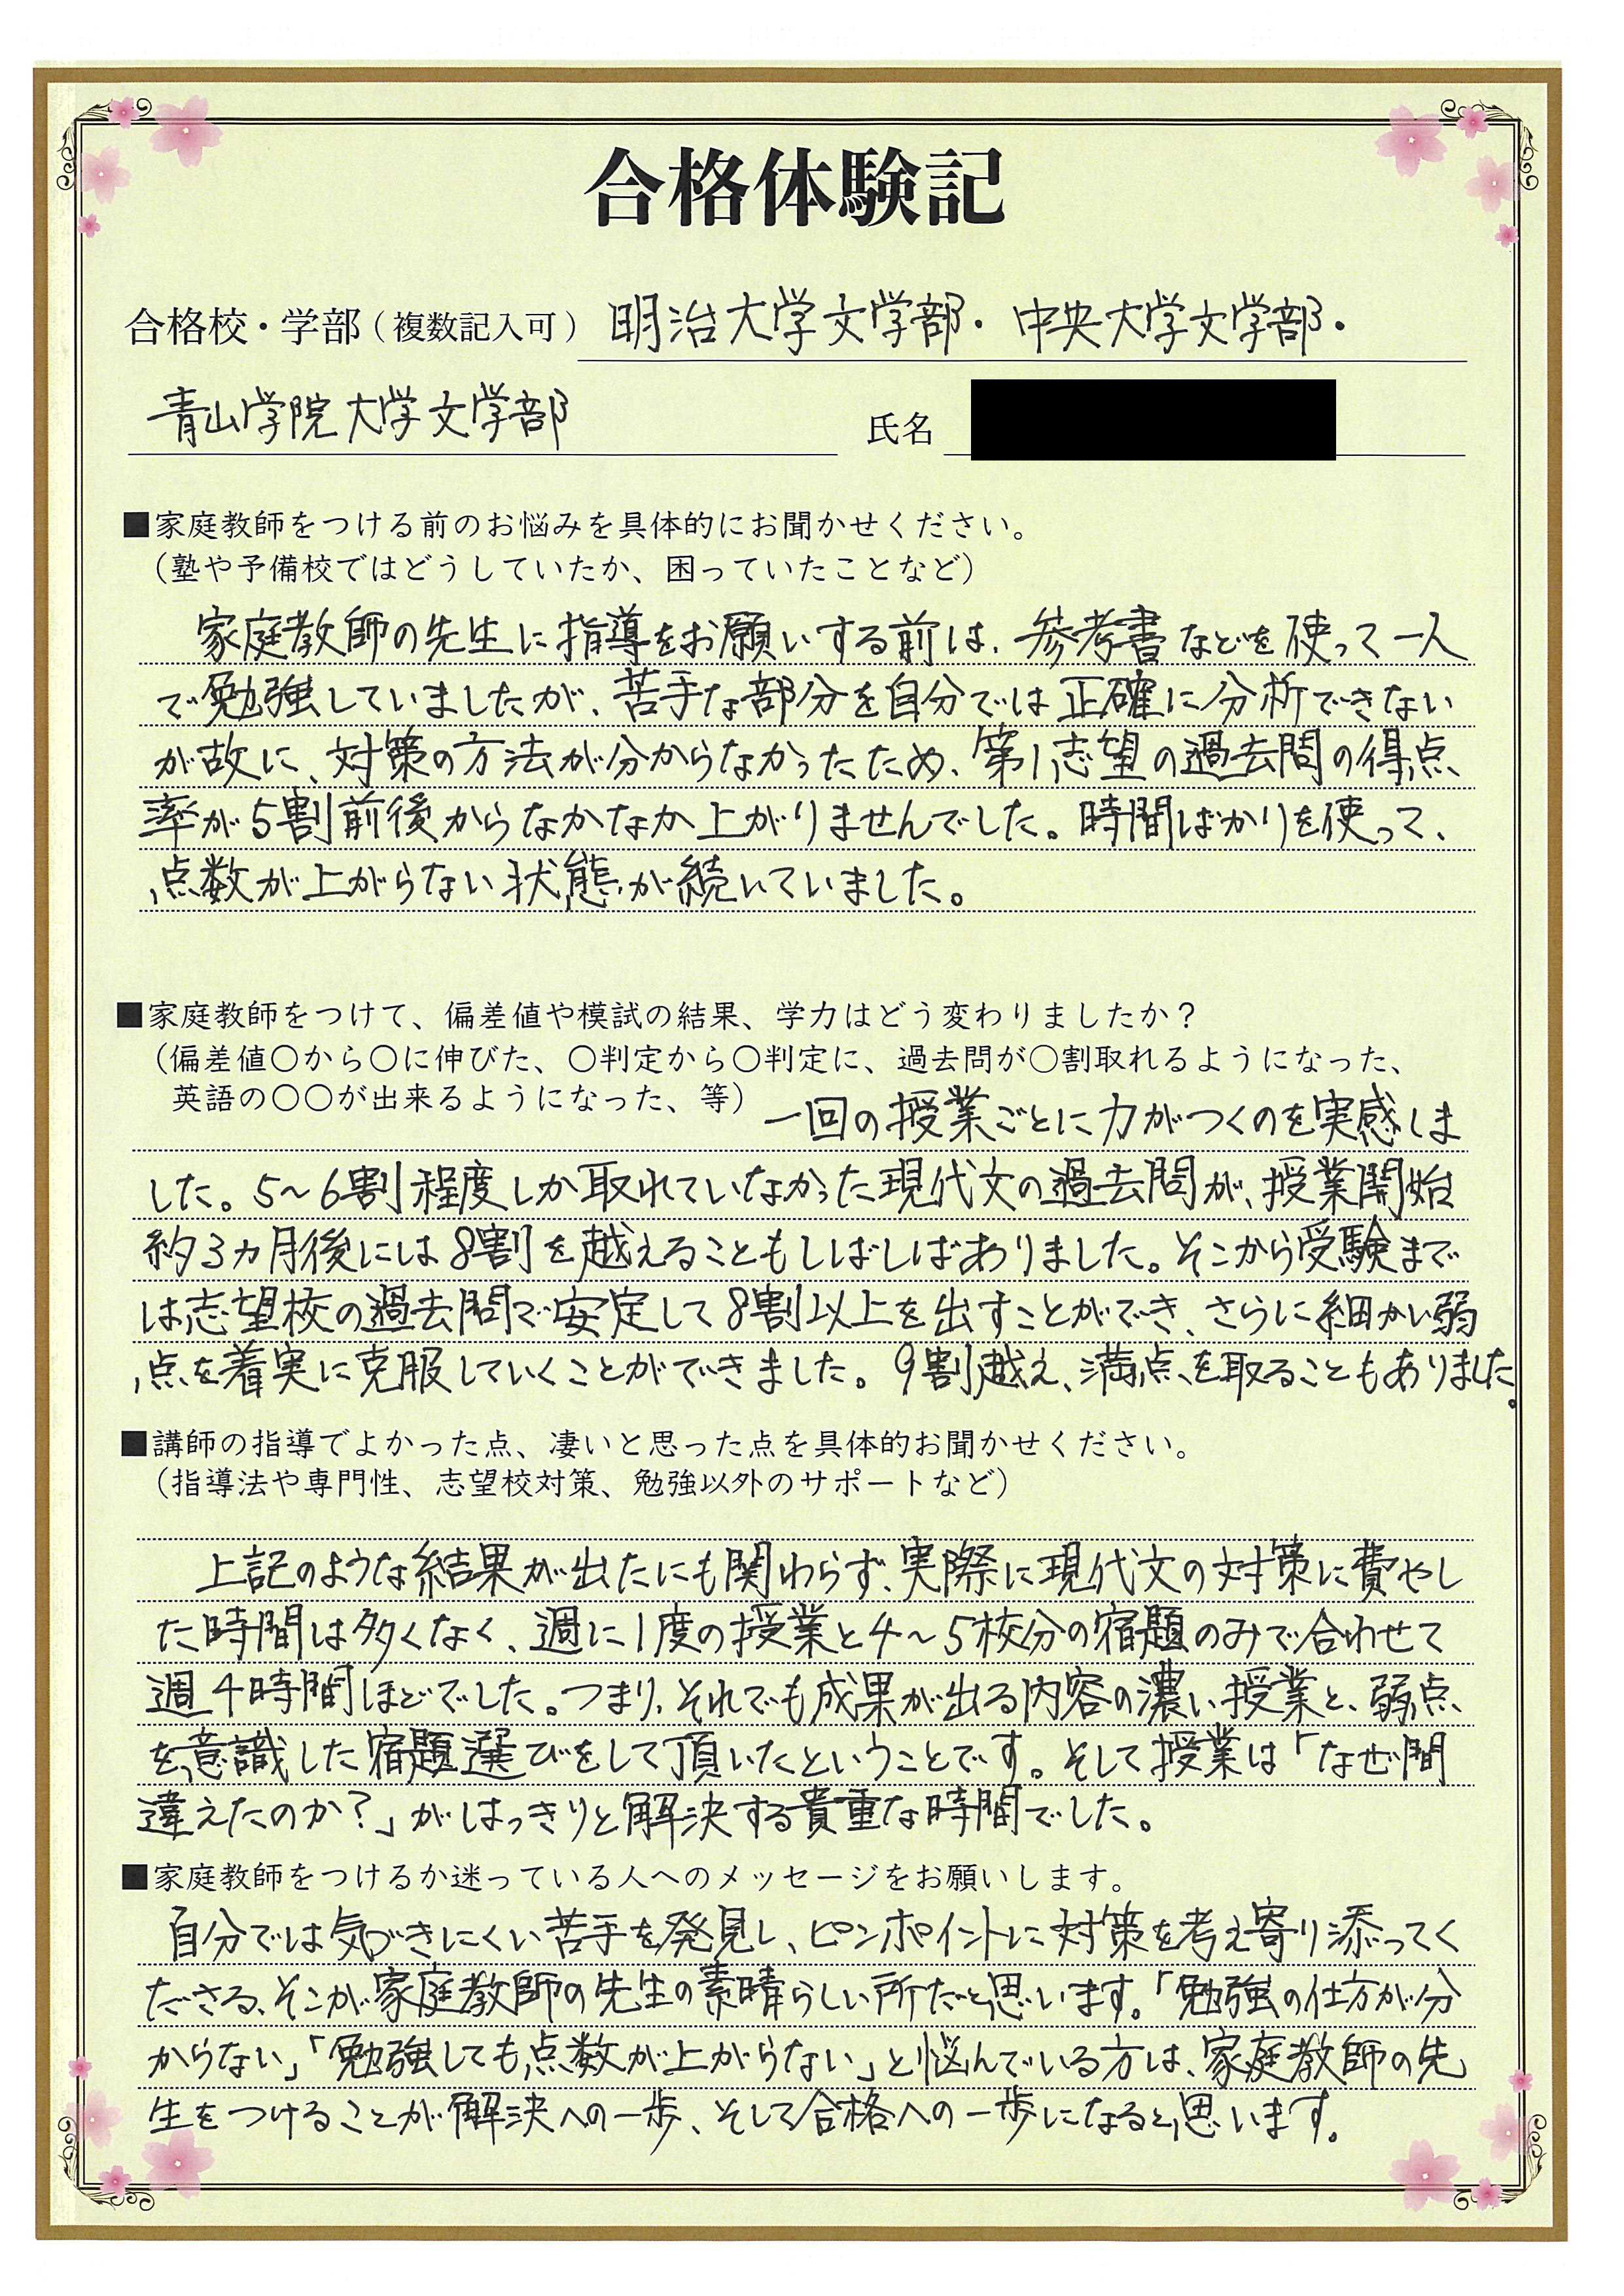 合格体験記
合格校・学部（複数記入可） 明治大学文学部・中央大学文学部・
青山学院大学文学部 氏名
■家庭教師をつける前のお悩みを具体的にお聞かせください。
（塾や予備校ではどうしていたか、困っていたことなど）
家庭教師の先生に指導をお願いする前は、参考書などを使って一人
で勉強していましたが、苦手な部分を自分では正確に分析できない
が故に、対策の方法が分からなかったため、第1志望の過去問の得点
率が5割前後からなかなか上がりませんでした。時間ばかりを使って、
点数が上がらない状態が続いていました。
■家庭教師をつけて、偏差値や模試の結果、学力はどう変わりましたか？
（偏差値〇から〇に伸びた、〇判定から〇判定に、過去問が〇割取れるようになった、
英語の〇〇が出来るようになった、等） 一回の授業ごとに力がつくのを実感しま
した。5～6割程度しか取れていなかった現代文の過去問が、授業開始
約3カ月後には8割を越えることもしばしばありました。そこから受験まで
は志望校の過去問で安定して8割以上を出すことができ、さらに細かい弱
点を着実に克服していくことができました。9割越え、満点を取ることもありました。
■講師の指導でよかった点、凄いと思った点を具体的お聞かせください。
（指導法や専門性、志望校対策、勉強以外のサポートなど）
上記のような結果が出たにも関わらず、実際に現代文の対策に費やし
た時間は多くなく、週に1度の授業と4～5枚分の宿題のみで合わせて
週4時間ほどでした。つまり、それでも成果が出る内容の濃い授業と、弱点
を意識した宿題選びをして頂いたということです。そして授業は「なぜ間
違えたのか？」がはっきりと解決する貴重な時間でした。
■家庭教師をつけるか迷っている人へのメッセージをお願いします。
自分では気づきにくい苦手を発見し、ピンポイントに対策を考え寄り添ってく
ださる、そこが家庭教師の先生の素晴らしい所だと思います。「勉強の仕方が分
からない」「勉強しても点数が上がらない」と悩んでいる方は、家庭教師の先
生をつけることが解決への一歩、そして合格への一歩になると思います。